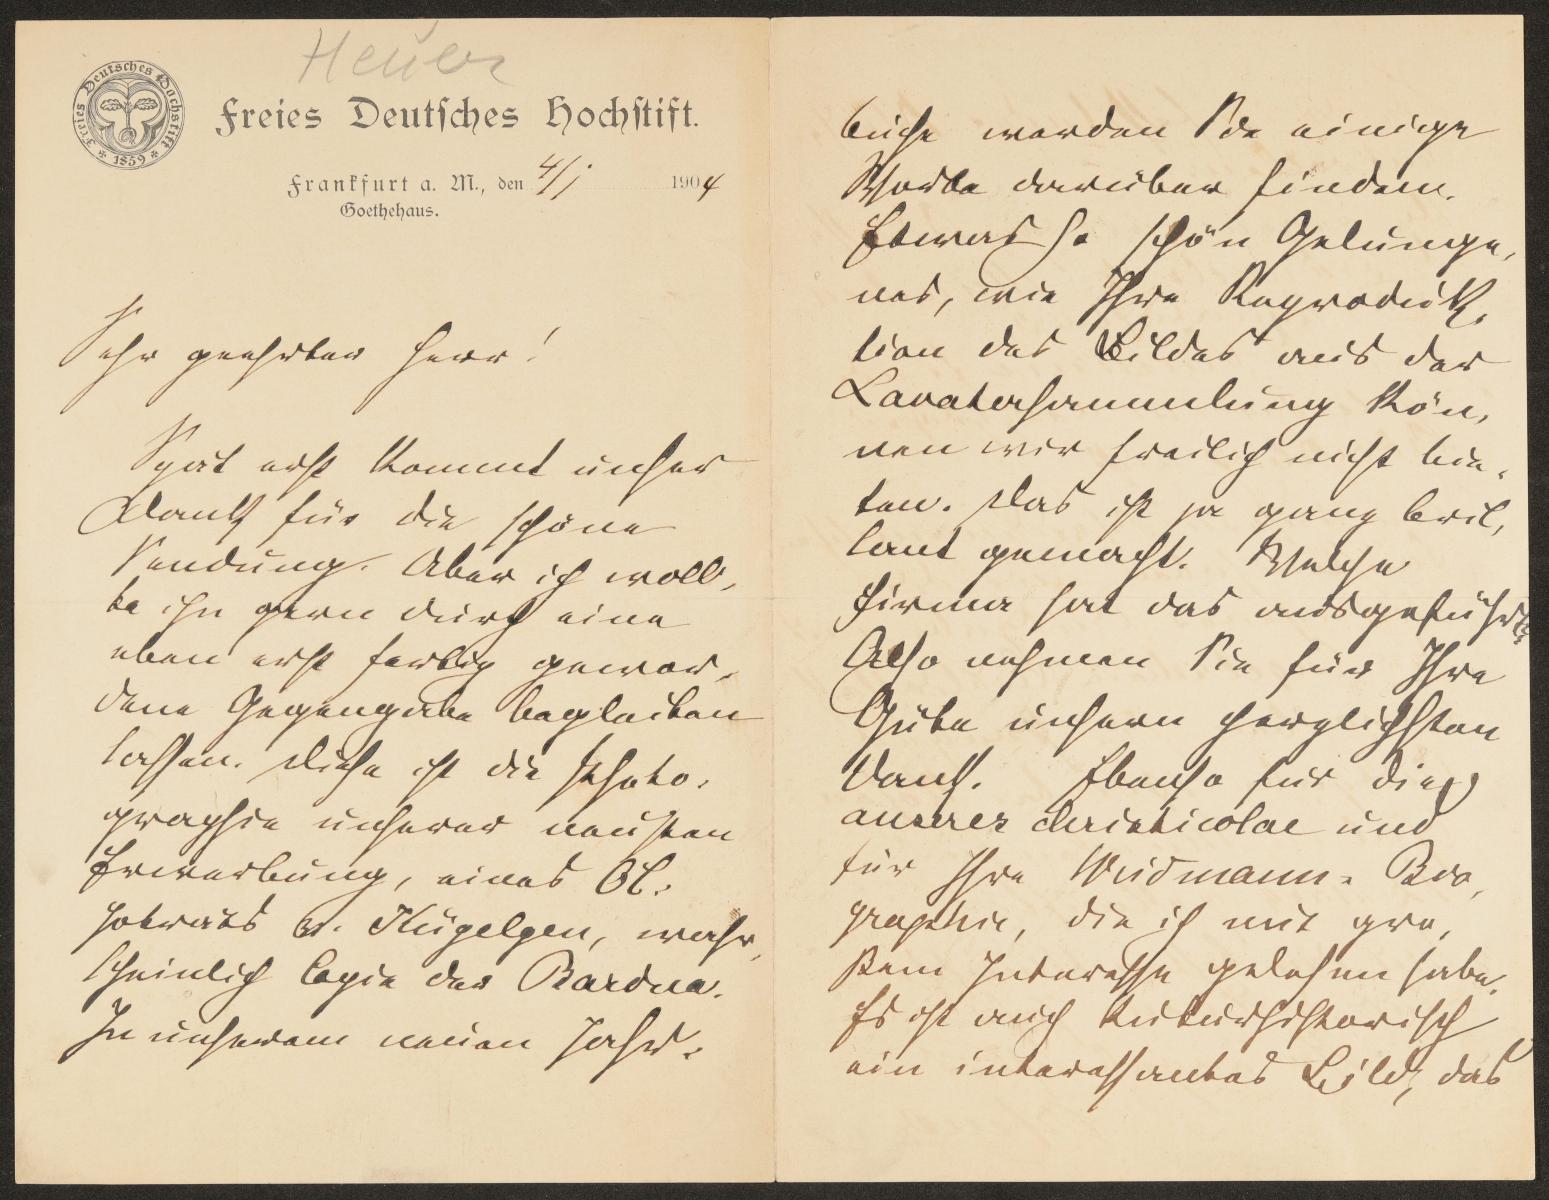 Heuer
Freies Deutsches Hochstift
1859
Freies Deutsches Hochstift.
Frankfurt a. M., den 4/1 1904
Goethehaus.
Sehr geehrter Herr!
Spät erst kommt unser
Dank für die schöne
Sendung. Aber ich woll-
te ihn gern durch eine
eben erst fertig gewor-
dene Gegengabe begleiten
lassen. Diese ist die Photo-
graphie unserer neusten
Erwerbung, eines Öl-
portraits v. Kügelgen, wahr-
scheinlich Copie der Bardua.
In unserem neuen Jahr-
buche werden Sie einige
Worte darüber finden.
Etwas so schön Gelunge-
nes, wie Ihre Reproduk-
tion des Bildes aus der
Lavatersammlung kön-
nen wir freilich nicht bie-
ten. Das ist ja ganz bril-
lant gemacht. Welche
Firma hat das ausgeführt?
Also nehmen Sie für Ihre
Güte unsern herzlichsten
Dank. Ebenso für die
und
für Ihre Widmann-Bio-
graphie, die ich mit gro-
ßem Interesse gelesen habe.
Es ist auch kulturhistorisch
ein interessantes Bild, das